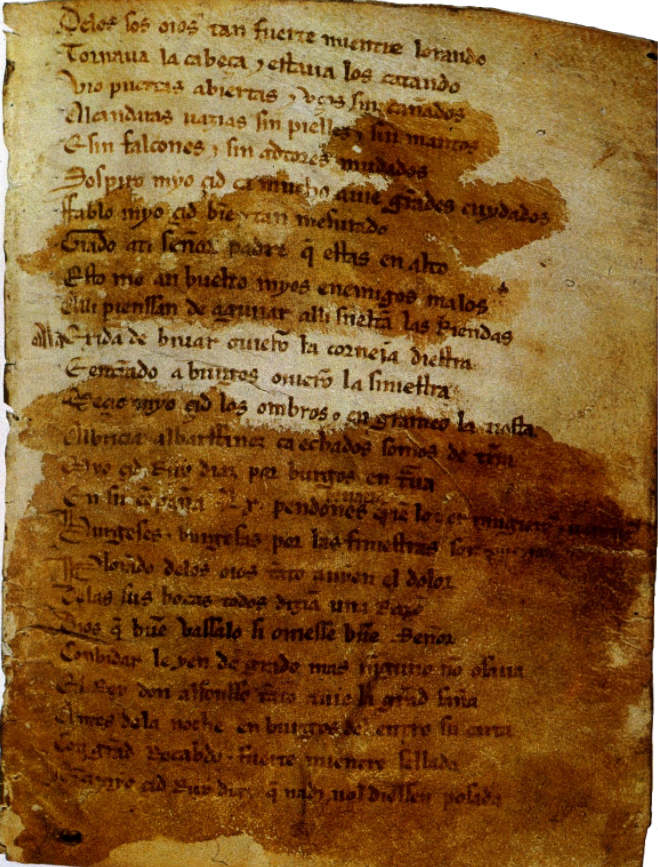 Delos sos oios tan fuerte mientre lorando
Tornaua la cabeça ⁊ estaua los catando
Vio puertas abiertas ⁊ vços sin cañados
Alcandaras uazias sin pielles ⁊ sin mantos
E sin falcones ⁊ sin adtores mudados
Sospiro myo çid ca mucho auie grãdes cuydados
Ffablo myo çid biẽ ⁊ tan mesurado
Grado ati señor padre q̃ estas en alto
Esto me an buelto myos enemigos malos
Alli pienssan de aguiiar alli sueltã las Riendas
Ala exida de biuar ouierõ la corneia diestra
E entrãdo a burgos ouierõ la siniestra
Meçio myo çid los ombros ⁊ en grameo la tiesta
Albricia albarffanez ca echados somos de tr̃ra
Myo çid Ruy diaz por burgos en traua
En su cõpaña .Lx. pendones
Burgeses ⁊ burgesas por las finiestras son
Plorãdo delos oios tãto auyen el dolor
Delas sus bocas todos diziã una Razõ
Dios q̃ buẽ vassalo si ouiesse buẽ Señor
Conbidar le yen de grado mas ninguno nõ osaua
El Rey don alfonsso tãto auie la grãd saña
Antes dela noche en burgos del entro su carta
Con grãd Recabdo ⁊ fuerte mientre sellada
Que a myo çid Ruy diaz q̃ nadi nol diessen posada